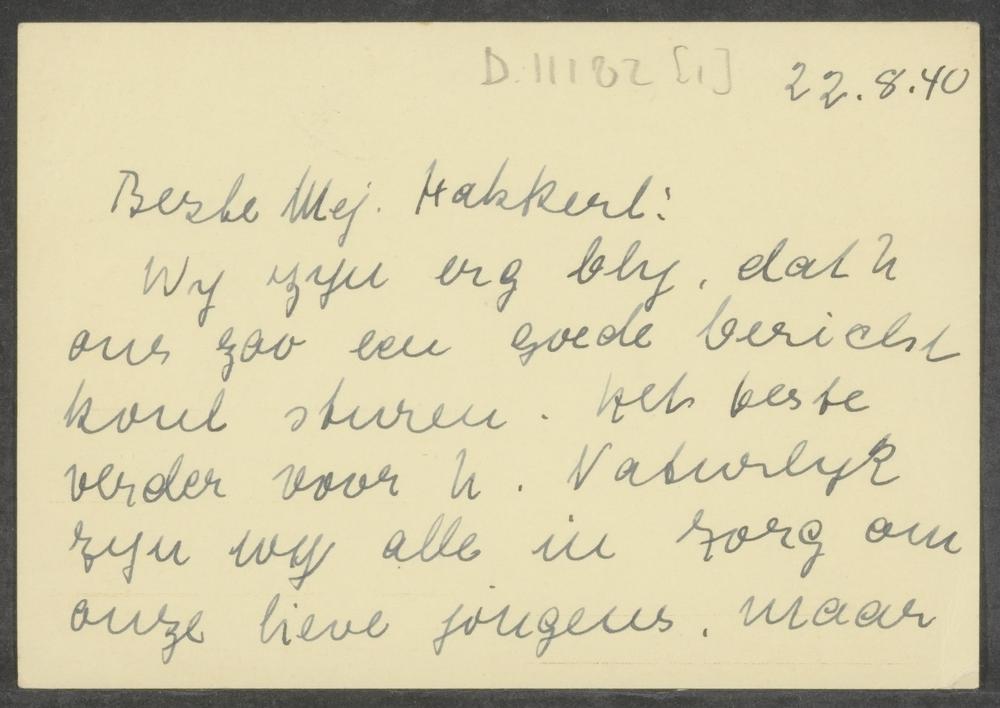 D.11182 [1]
22.8.40
Beste Mej. Hakkert:
Wy zyn erg bly, dat U
ons zoo een goede bericht
kont sturen. Het beste
verder voor U. Naturlyk
zyn wy alle in zorg om
onze lieve jongens, maar